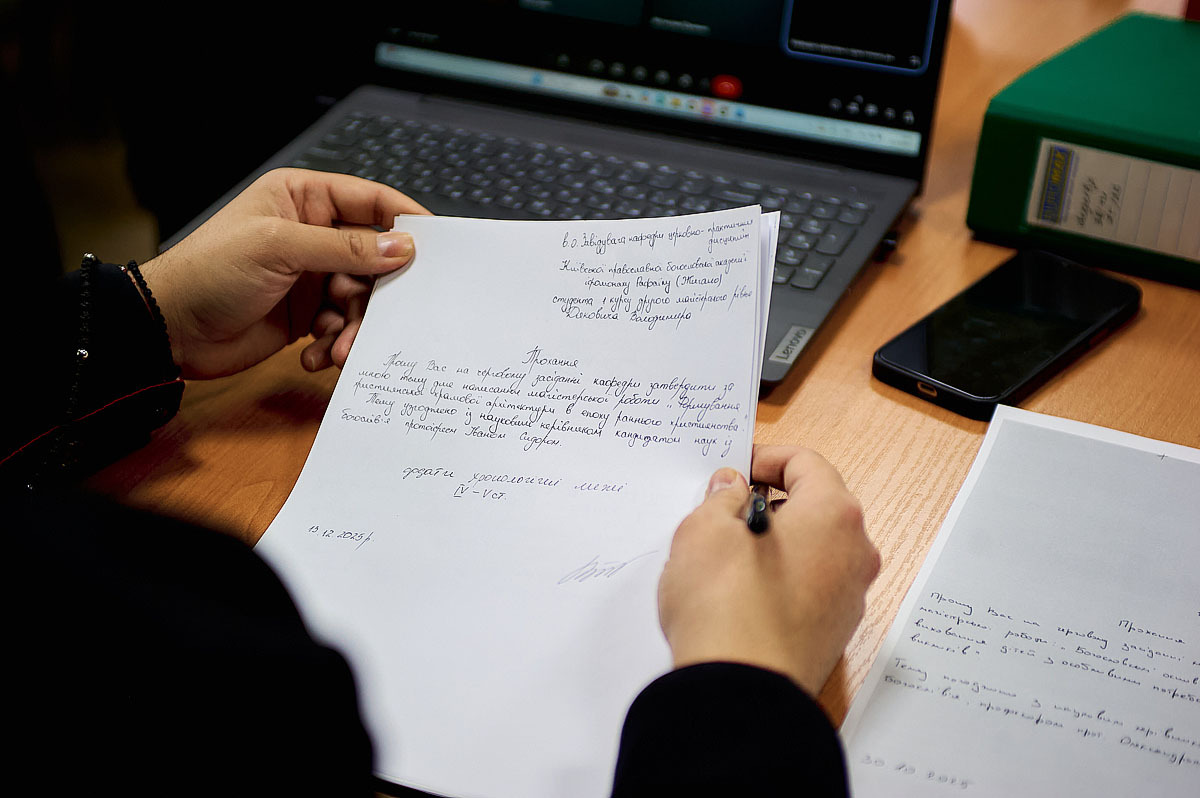 в.о. Завідувача кафедри церковно-практичних
дисциплін
Київської православної богословської академії
ієромонаху Рафаїлу (Жигало)
студента 1 курсу другого магістерського рівню
Володимира
Прохання
Прошу Вас на черговому засіданні кафедри затвердити за
мною тему для написання магістерської роботи „Формування
християнської храмової архітектури в епоху раннього християнства".
Тему узгоджено із науковим керівником кандидатом наук із
богослів'я протоієреєм Іваном Сидором.
додати хронологічні межі
IV – V ст.
13.12.2025 р.
Lenovo
Прохання
Прошу Вас на чергову засіданні
магістерської роботи: „Богословські основи
виховання дітей з особливими потребами
викликів"
Тему погоджено з науковим керівником
Богослів'я, професором прот. Олександром
30 10 2025